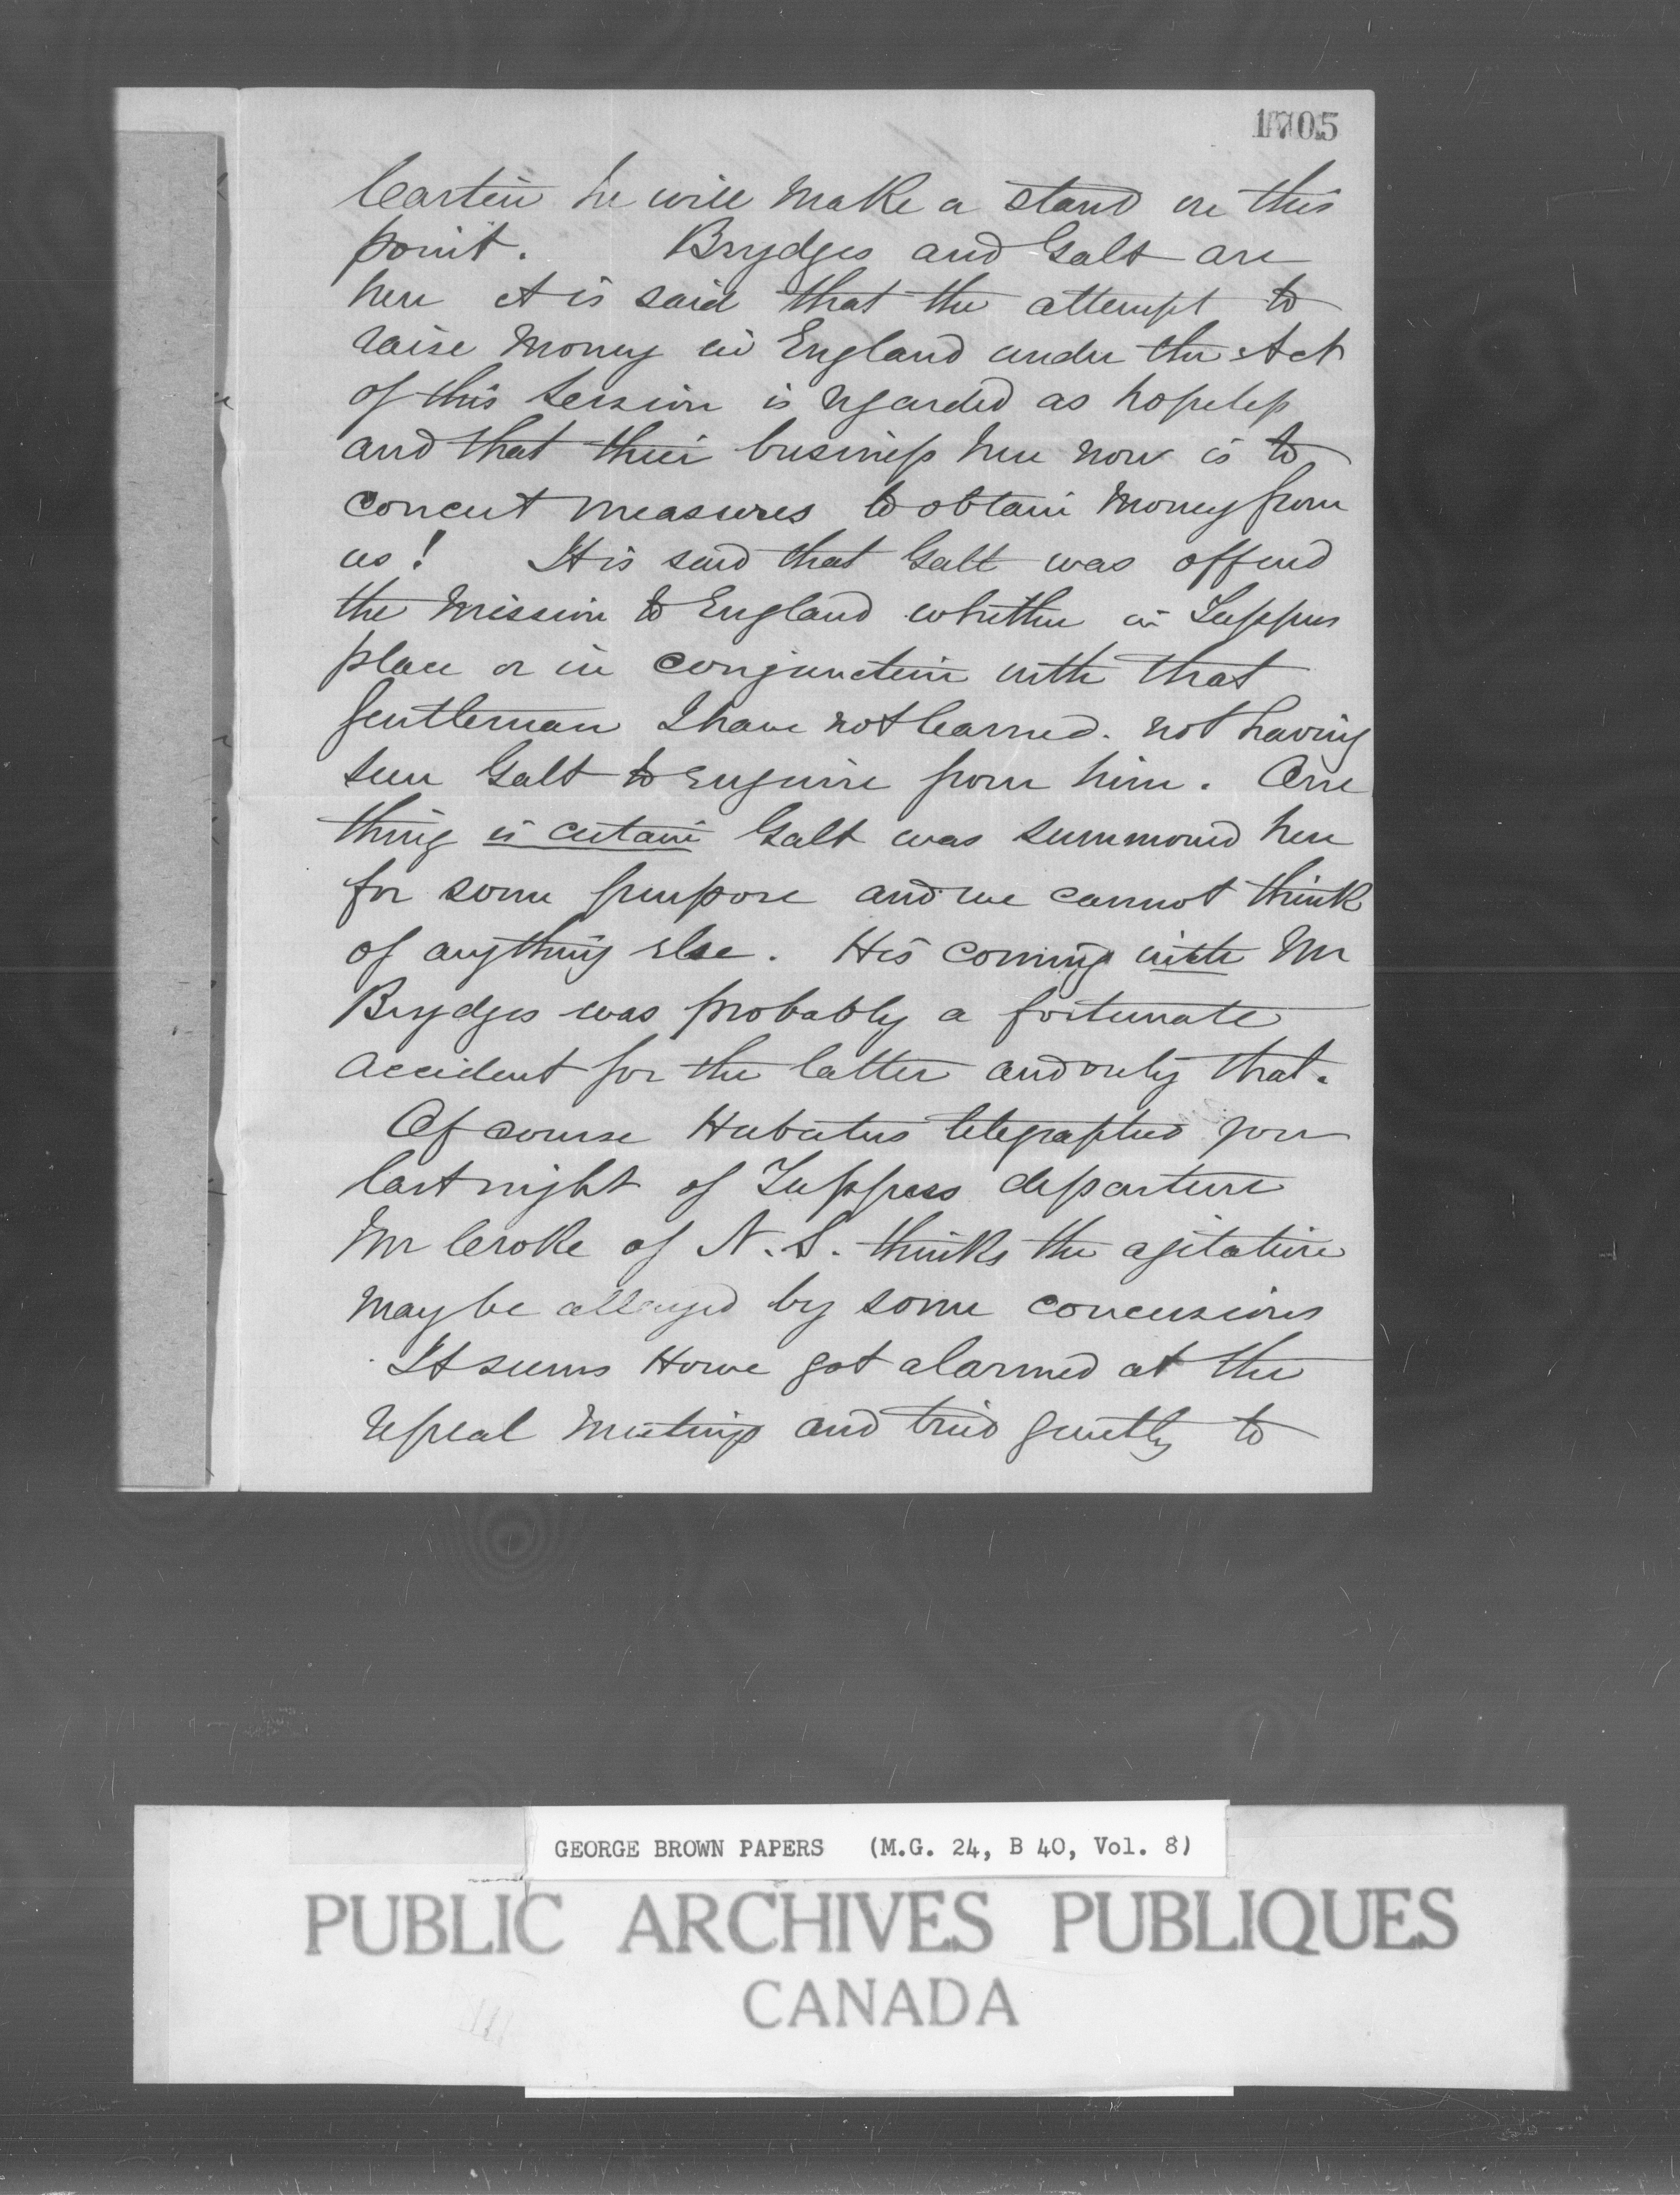 1705
Cartier he will make a stand on this
point. Brydges and Galt are
here It is said that the attempt to
raise money in England under the Act
of this Session is regarded as hopeless
and that their business here now is to
concert measures to obtain money from
us! It is said that Galt was offered
the Mission to England whether in Tuppers
place or in conjunction with that
gentleman I have not learned. not having
seen Galt to enquire from him. One
thing is certain Galt was summoned here
for some purpose and we cannot think
of anything else. His coming with Mr
Brydges was probably a fortunate
accident for the latter and only that.
Of course telegraphed you
last night of Tuppers departure
Mr Croke of N.S. thinks the agitation
may be allayed by some concessions
It seems Howe got alarmed at the
repeal meetings and tried gently to
GEORGE BROWN PAPERS (M.G. 24, B 40, Vol. 8)
PUBLIC ARCHIVES PUBLIQUES
CANADA